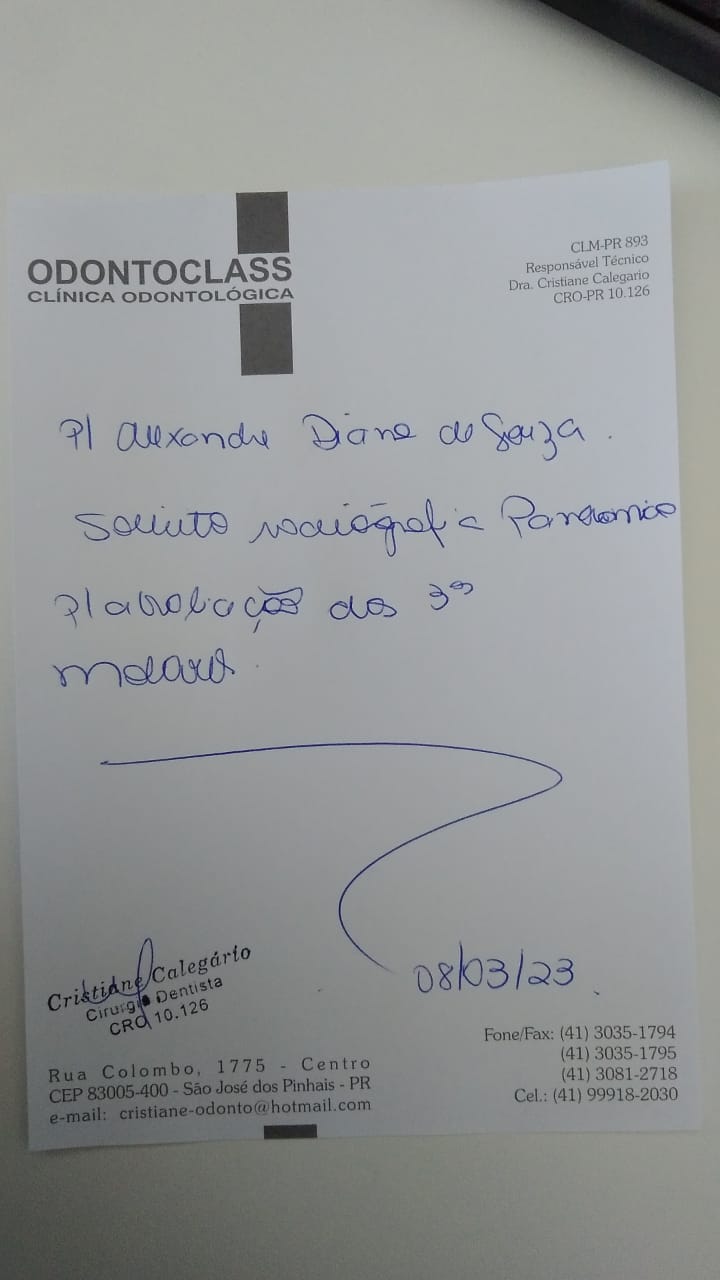 ODONTOCLASS
CLÍNICA ODONTOLÓGICA
CLM-PR 893
Responsável Técnico
Dra. Cristiane Calegario
CRO-PR 10.126
P/ Alexandre Diane de Souza.
Solicito radiografia Panoramica
P/ avaliação dos 3ºs
molares.
08/03/23
Cristiane Calegário
Cirurgiã Dentista
CRO 10.126
Rua Colombo, 1775 - Centro
CEP 83005-400 - São José dos Pinhais - PR
e-mail: cristiane-odonto@hotmail.com
Fone/Fax: (41) 3035-1794
(41) 3035-1795
(41) 3081-2718
Cel.: (41) 99918-2030